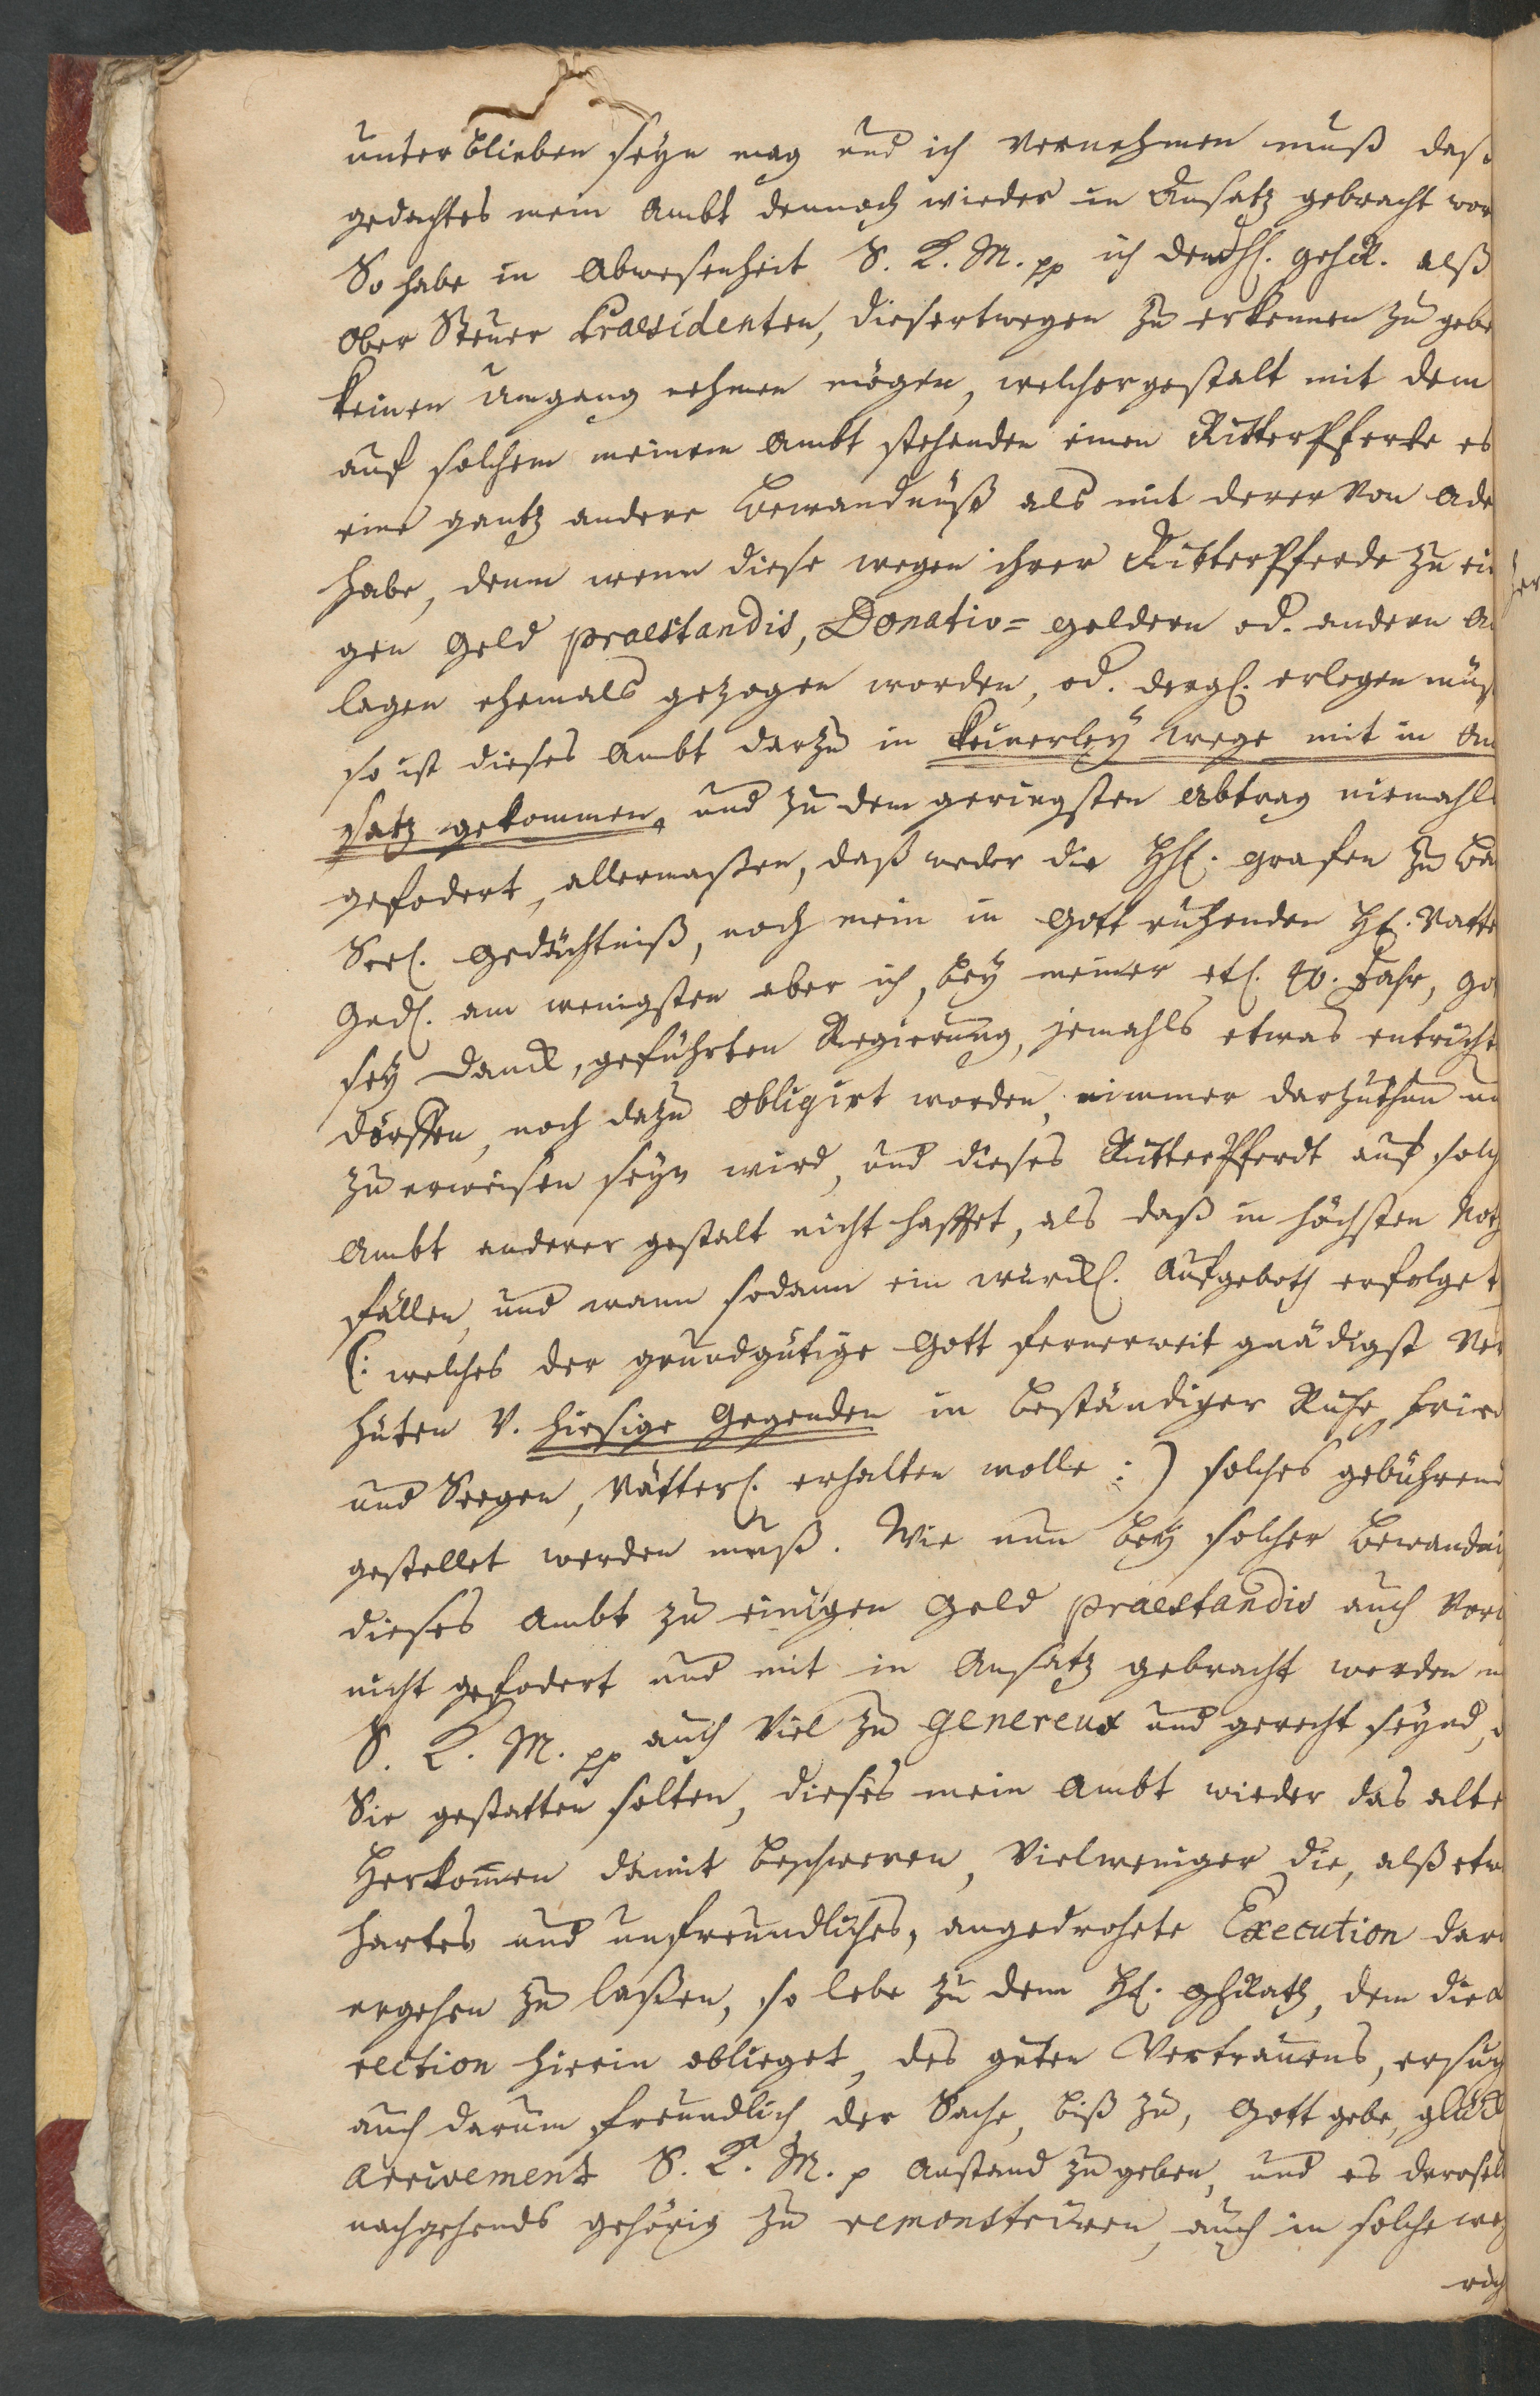 unterblieben seyn mag und ich vernehmen muß daß
gedachtes mein Ambt dennoch wieder in Ansatz gebracht wor
So habe in Abwesenheit S. K. M. pp ich dem alß
Ober Steuer Praesidenten, diesertwegen zu erkennen zu gebe
keinen Umgang nehmen mögen, welchergestalt mit dem
auf solchem meinem Ambt stehenden einen RitterPferde es
eine gantz andere Bewandnüß als mit derer von Ade
habe, denn wenn diese wegen ihrer RitterPferde zu ei
gen Geld praestandis, Donativ= geldern od. andern A
lagen ehemals gezogen worden, od. dergl. erlegen müß
so ist dieses Ambt darzu in keinerley wege mit in An
satz gekommen, und zu dem geringsten Abtrag niemahls
gefodert, allermaßen, daß weder die HH. Grafen zu
Seel. Gedächtniß, noch mein in Gott ruhenden H. Vatter
Ged. am wenigsten aber ich, bey meiner etl. 40. Jahr, Go
sey Danck, geführten Regierung, jemahls etwas entricht
dörffen, noch dazu obligirt worden, nimmer darzuthun un
zu erweisen seyn wird, und dieses RitterPferdt auf solch
Ambt anderer gestalt nicht hafftet, als daß in höchsten Noth
fällen, und wann sodann ein würckl. Aufgeboth erfolget
(: welches der grundgütige Gott fernerweit gnädigst ver
hüten v. hiesige Gegenden in beständiger Ruhe, Fried
und Seegen, vätterl. erhalten wolle :) solches gebührend
gestellet werden muß. Wie nun bey solcher Bewandnü
dieses Ambt zu einigen Geld praestandis auch vor
nicht gefodert und mit in Ansatz gebracht werden m
S. K. M. pp auch viel zu genereux und gerecht seynd, d
Sie gestatten solten, dieses mein Ambt wieder das alte
Herkom̄en damit beschweren, vielweniger die, alß etw
hartes und unfreundliches, angedrohete Execution dar
ergehen zu laßen, so lebe zu dem H. GhRath, dem die
rection hierin oblieget, des guten Vertrauens, ersuch
auch darum freundlich der Sache, biß zu, Gott gebe, glück
arrivement S. K. M. p Anstand zu geben, und es derosel
nachgehends gehörig zu remonstriren, auch in solche weg
rich